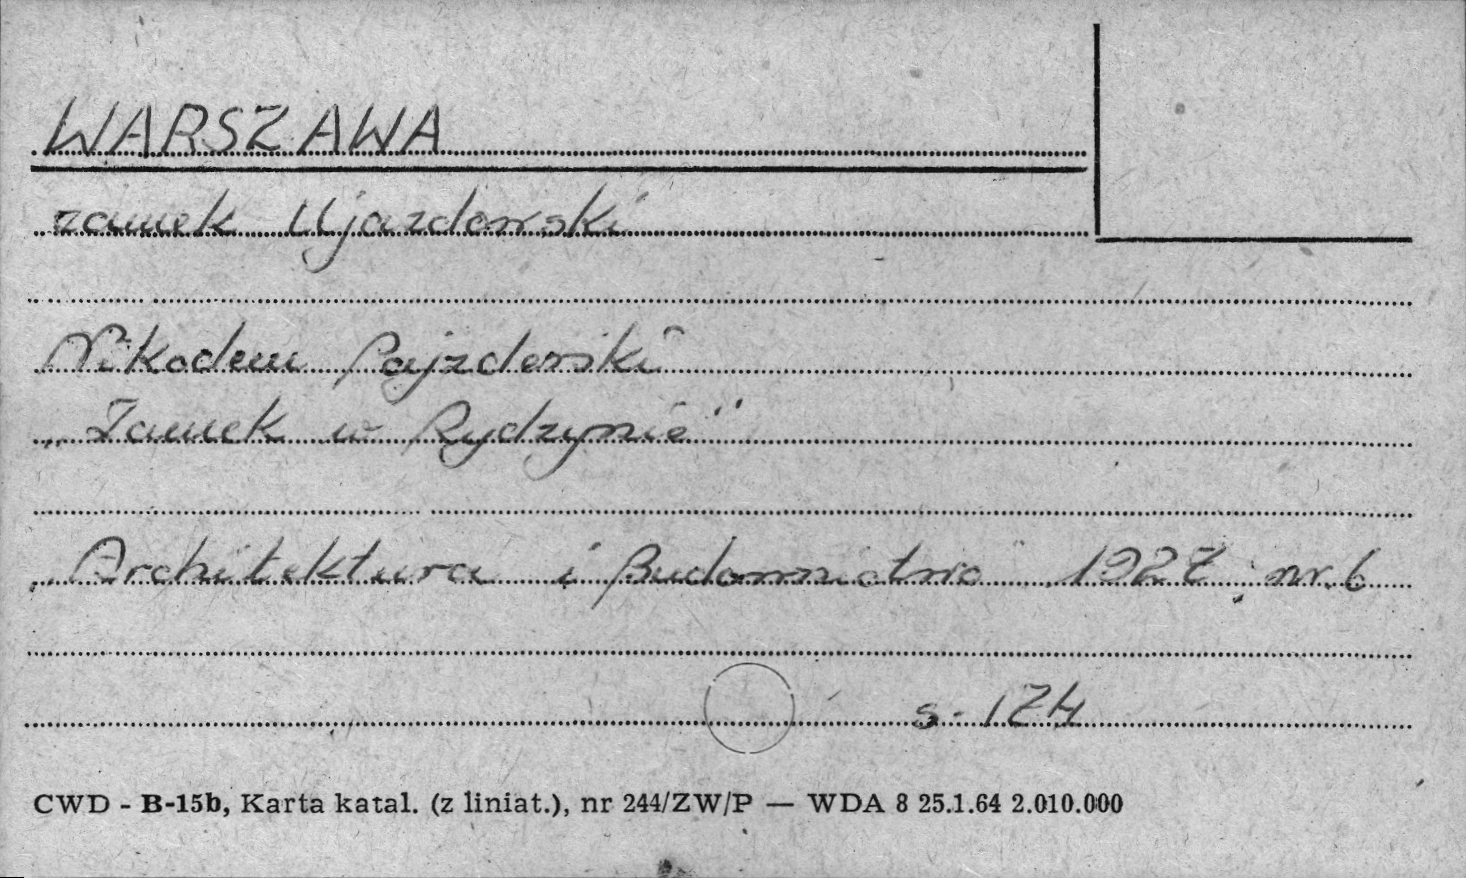 WARSZAWA
zamek Ujazdowski
Nikodem Pajzderski
„Zamek w Rydzynie"
„Architektura i Budownictwo" 1927, nr. 6
s. 174
CWD - B-15b, Karta katal. (z liniat.), nr 244/ZW/P — WDA 8 25.1.64 2.010.000